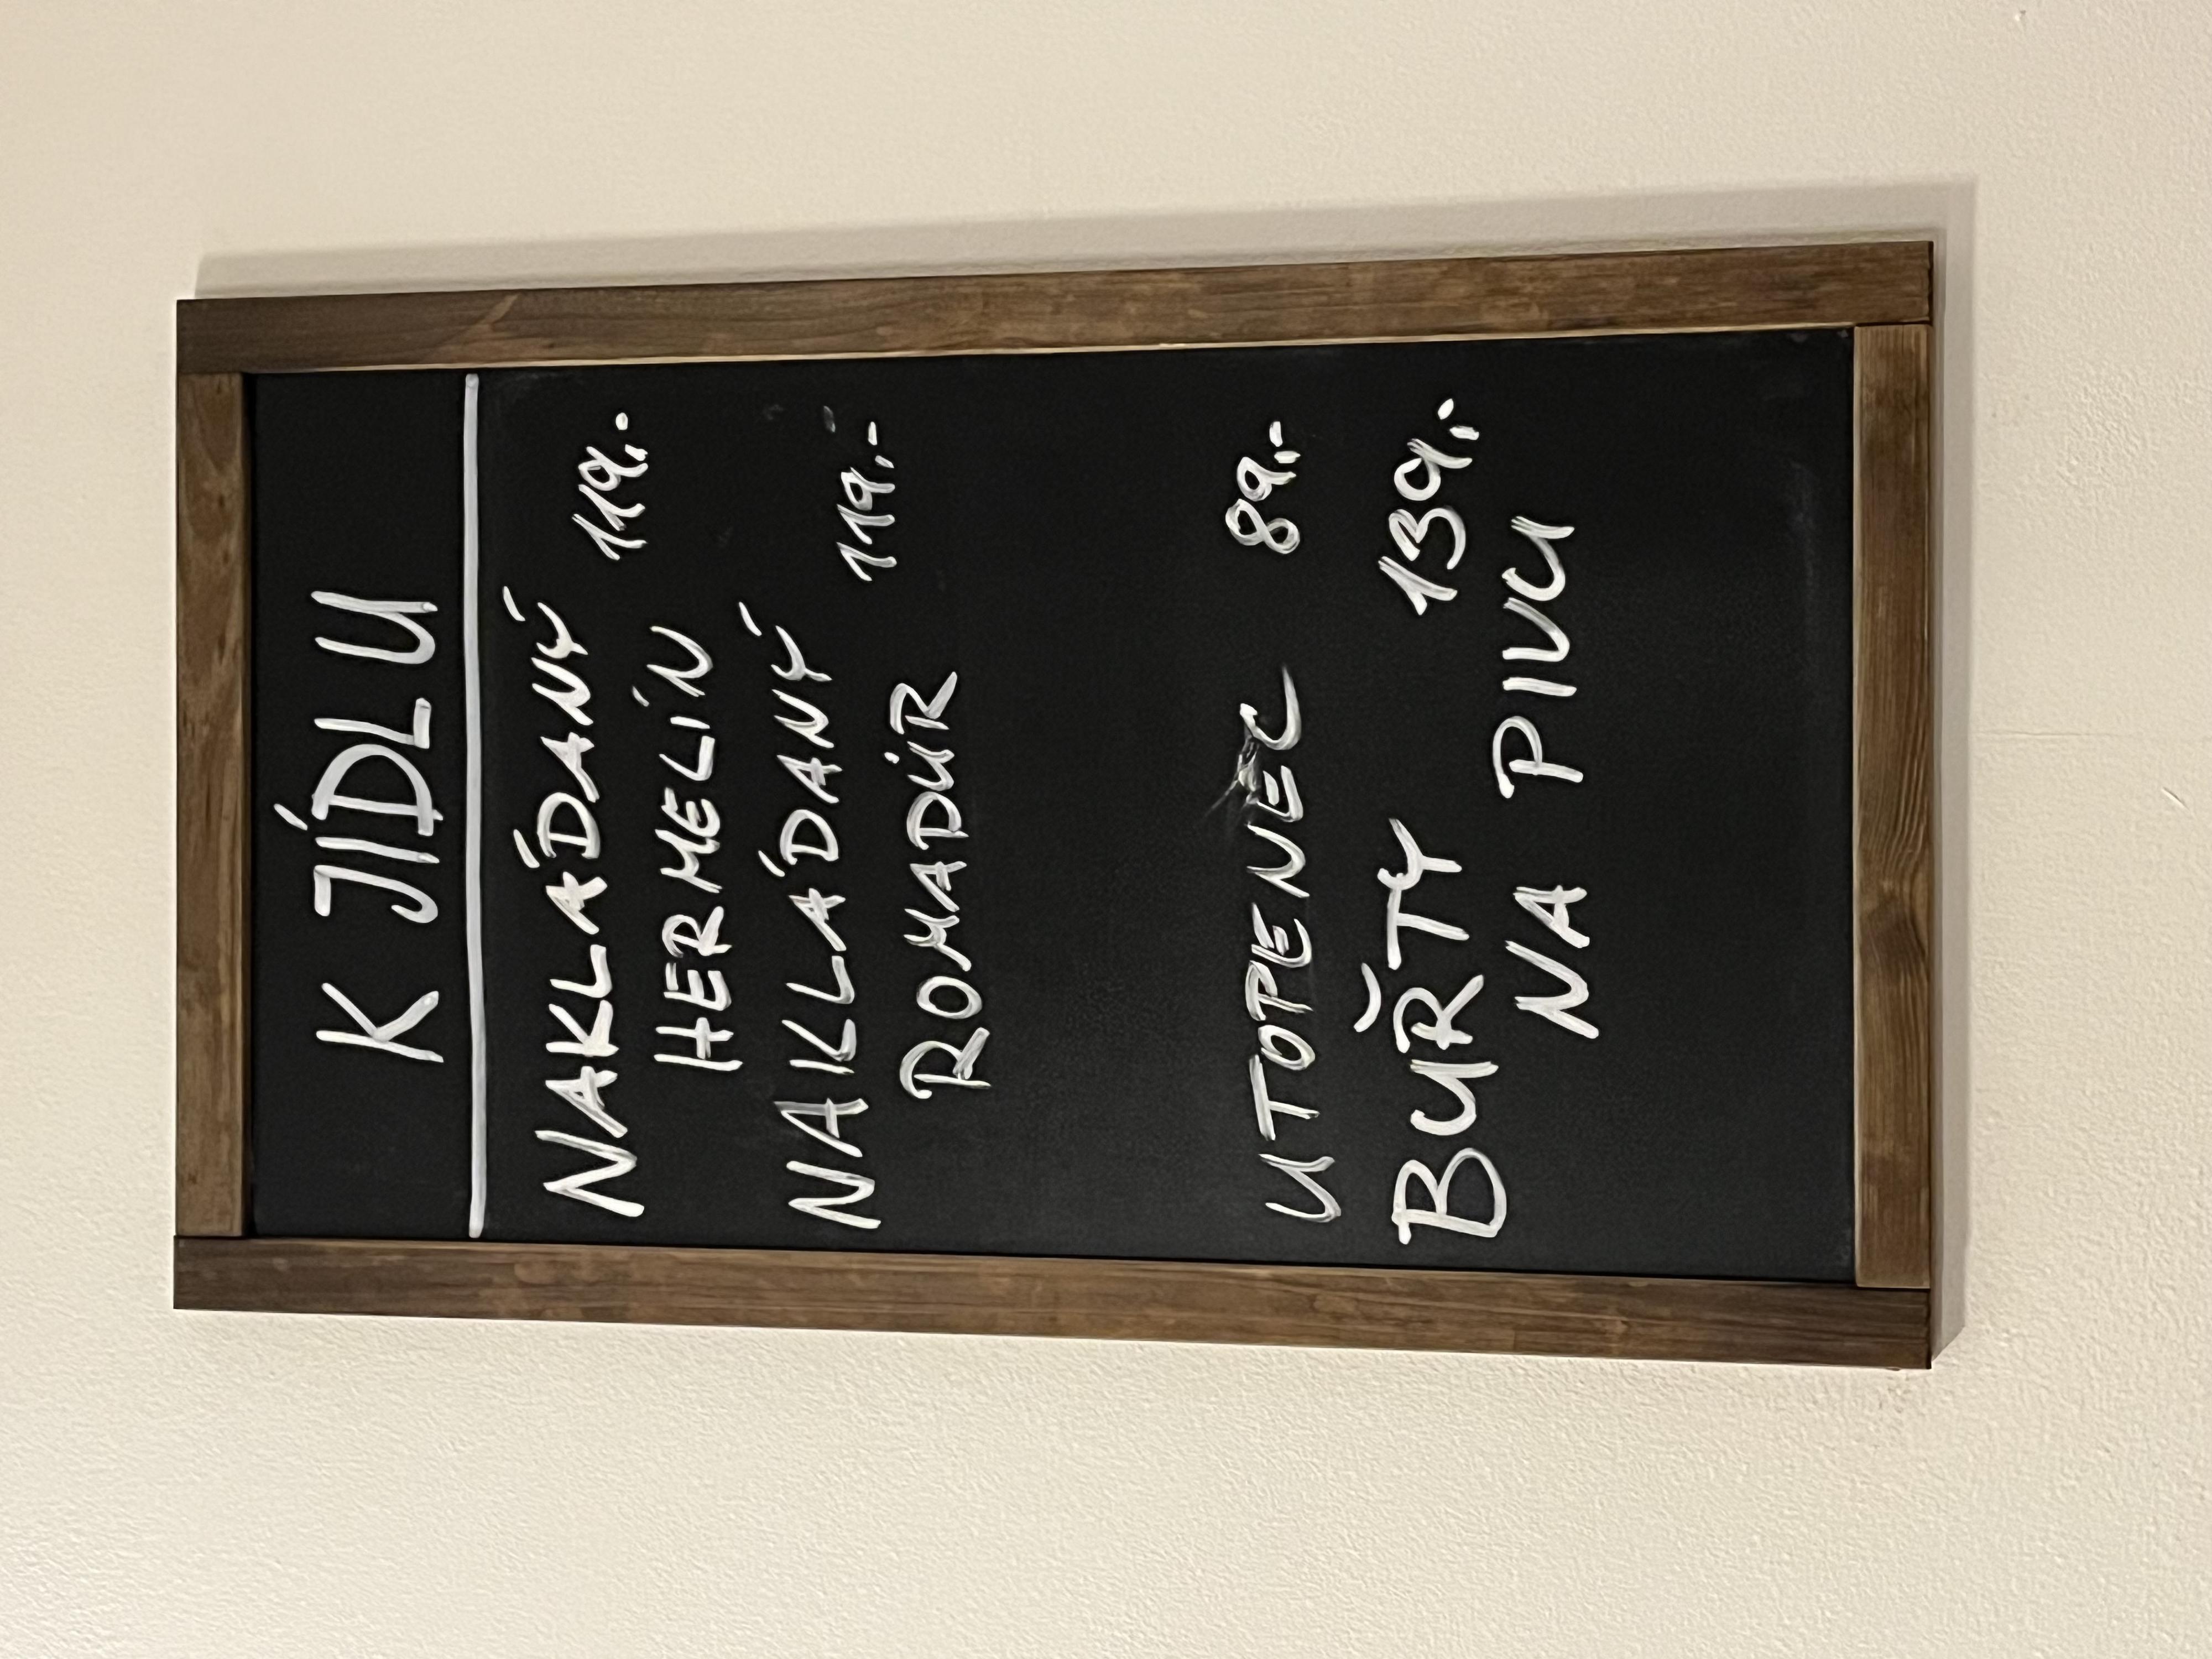 K JÍDLU
NAKLÁDANÝ 119.-
HERMELÍN
NAKLÁDANÝ 119.-
ROMADÚR
UTOPENEC 89.-
BUŘTY 139.-
NA PIVU